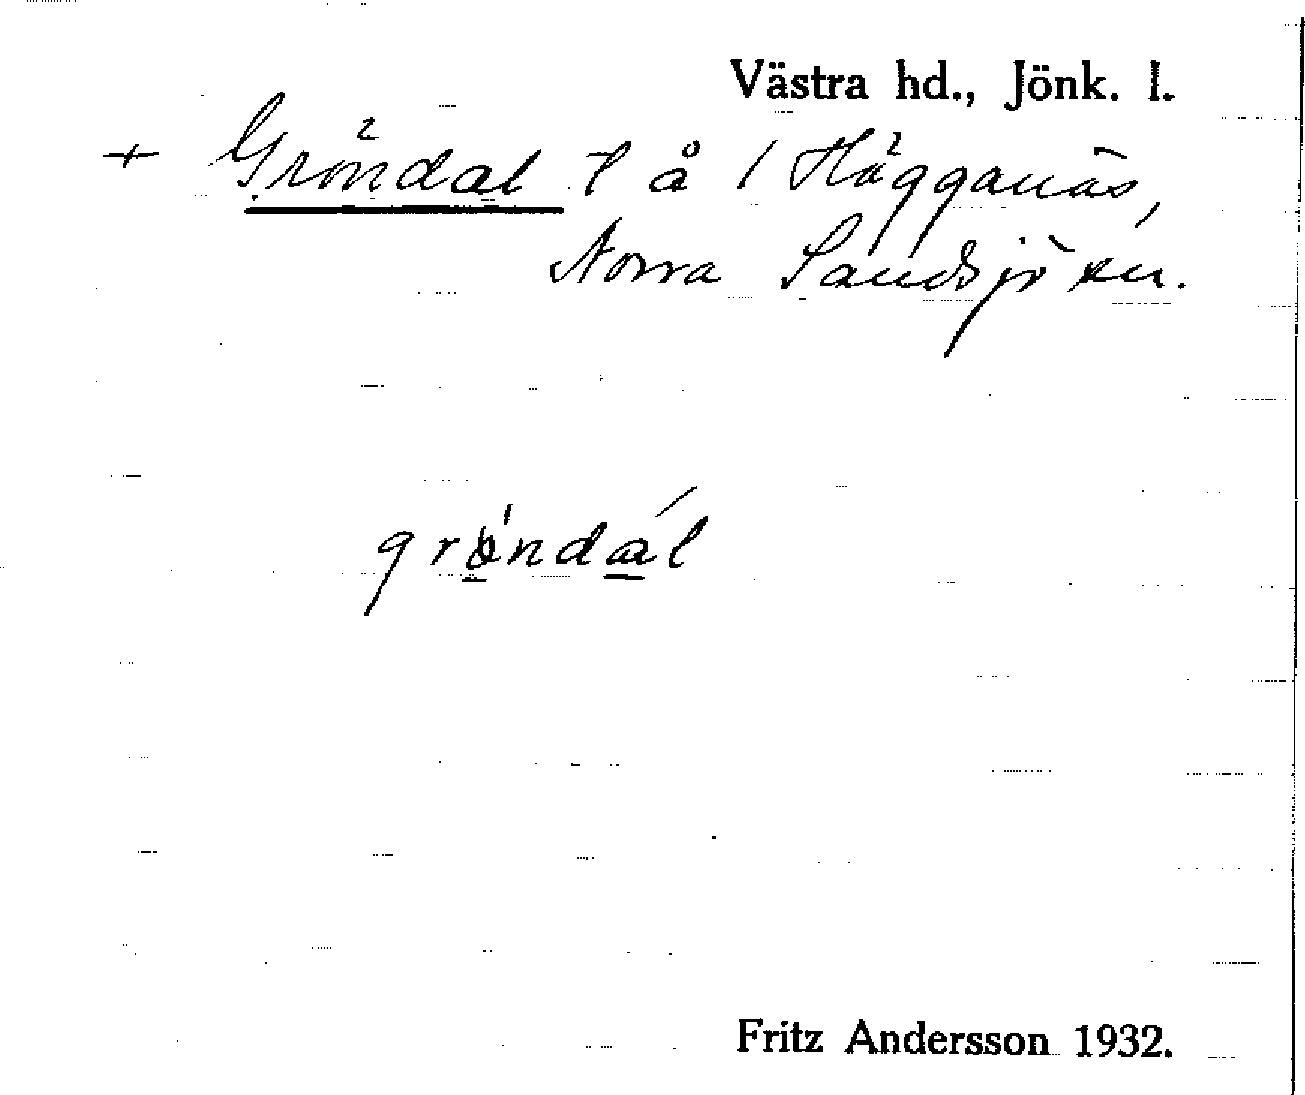 Västra hd., Jönk. l.
+ Gröndal l å 1 Hägganäs,
Norra Sandsjö sn.
gröndal
Fritz Andersson 1932.